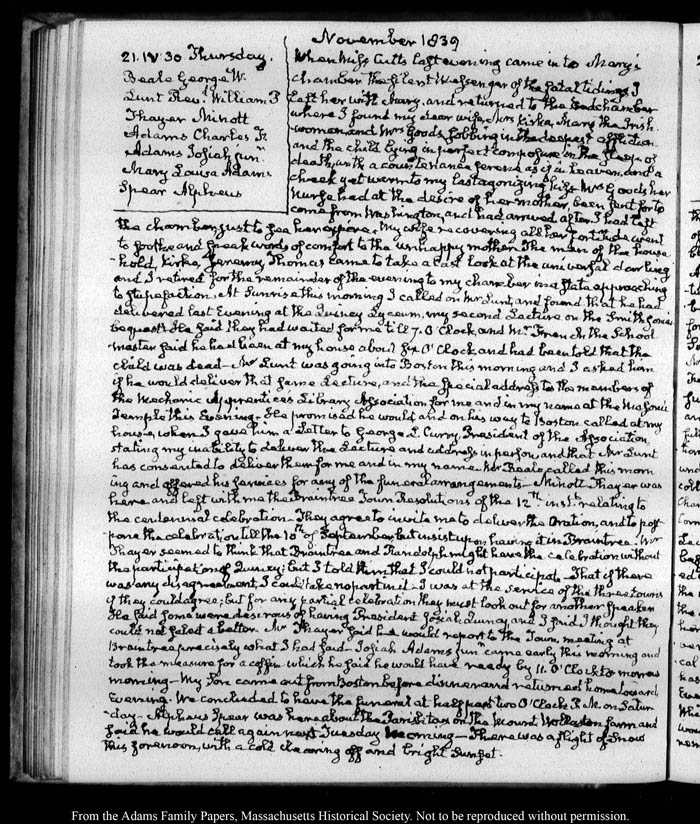 November 1839
21. IV. 30 Thursday.
Beale George W.
Lunt Revd. William P
Thayer Minott
Adams Charles F.
Adams Josiah jun.
Mary Louisa Adams
Spear Alpheus
When Miss Cutts last evening came in to Mary's
chamber the silent Messenger of the fatal tidings I
left her with Mary, and returned to the bedchamber
where I found my dear wife, Mrs Kirke, Mary the Irish
woman, and Mrs Goods, sobbing in the deepest affliction
and the child lying in perfect composure in the sleep of
death, with a countenance serene as if in heaven, and a
cheek yet warm to my last agonizing kiss Mrs Goods her
nurse had at the desire of her mother, been sent for to
come from Washington, and had arrived after I had left
the chamber, just to see her expire. My wife recovering all her fortitude went
to soothe and speak words of comfort to the unhappy mother. The men of the house
-hold, Kirke, Jeremy Thomas came to take a last look at the universal darling
and I retired for the remainder of the evening to my chamber in a state approaching
to stupefaction. At Sunrise this morning I called on Mr Lunt, and found that he had
delivered last Evening at the Quincy Lyceum, my second Lecture on the Smithsonian
bequest. He said they had waited for me till 7. O'Clock, and Mr French the School
master said he had been at my house about six O'Clock, and had been told that the
child was dead— Mr Lunt was going into Boston this morning and I asked him
if he would deliver that same Lecture, and the special address to the members of
the Mechanic Apprentices Library Association for me and in my name at the Masonic
Temple this Evening— He promised he would and on his way to Boston called at my
house, when I gave him a Letter to George L. Curry, President of the Association,
stating my inability to deliver the Lecture and address in person, and that Mr Lunt
has consented to deliver them for me and in my name. Mr Beale called this morn
ing and offered his services for any of the funeral arrangements— Minott Thayer was
here and left with me the Braintree Town Resolutions of the 12th inst. relating to
the centennial celebration— They agree to invite me to deliver the Oration, and to post
pone the celebration till the 10th of September, but insist upon having it in Braintree. Mr
Thayer seemed to think that Braintree and Randolph might have the celebration without
the participation of Quincy; but I told him that I could not participate— That if there
was any disagreement, I could take no part in it— I was at the service of the three Towns
if they could agree; but for any partial celebration they must look out for another Speaker
He said some were desirous of having President Josiah Quincy, and I said I thought they
could not select a better. Mr Thayer said he would report to the Town meeting at
Braintree precisely what I had said— Josiah Adams junr. came early this morning and
took the measure for a coffin which he said he would have ready by 11. O'Clock to morrow
morning— My Son came out from Boston before dinner and returned home towards
Evening. We concluded to have the funeral at half past two O'Clock P.M. on Satur
-day— Alpheus Spear was here about the Parish tax on the Mount Wollaston farm and
said he would call again next Tuesday Morning— There was a flight of Snow
this forenoon, with a cold clearing off and bright Sunset.
From the Adams Family Papers, Massachusetts Historical Society. Not to be reproduced without permission.